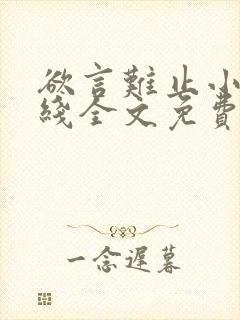 欲言難止小
綫全文免費
一念遲暮